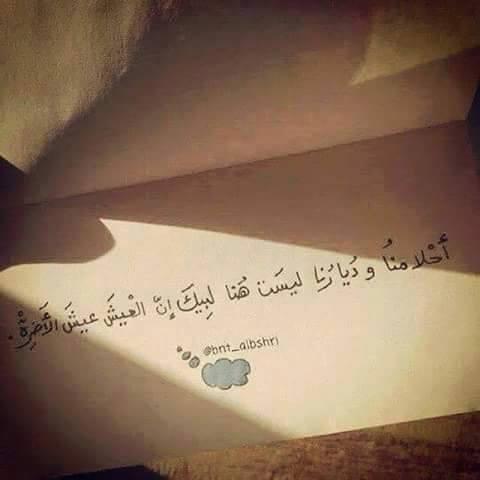 أَحْلامنُا و دُيارُنا ليسَت هُنا لبِيكَ إنّ الْعيشَ عيشَ الأَخِرةْ .
@bnt_albshri